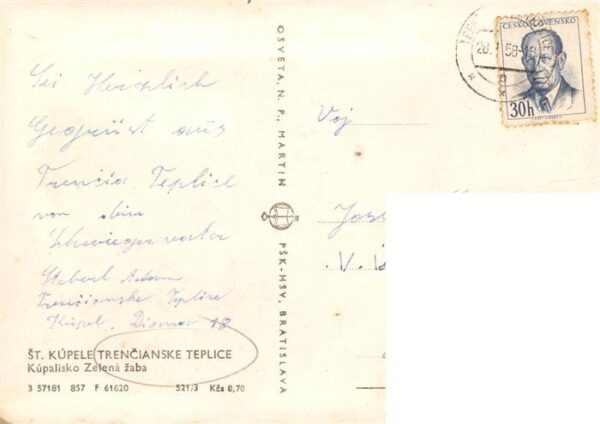 Sei Herzlich
Gegrüst aus
Trenčia Teplice
von dein
Schwiegervater
Adam
Trenčianske Teplice
Kúpel. Diana 18
ŠT. KÚPELE TRENČIANSKE TEPLICE
Kúpalisko Zelená žaba
3 57181 857 F 61620 521/3 Kčs 0,70
OSVETA, N. P., MARTIN
PŠK-HSV, BRATISLAVA
Voj
V.
28. 58-18
ČESKOSLOVENSKO
30h